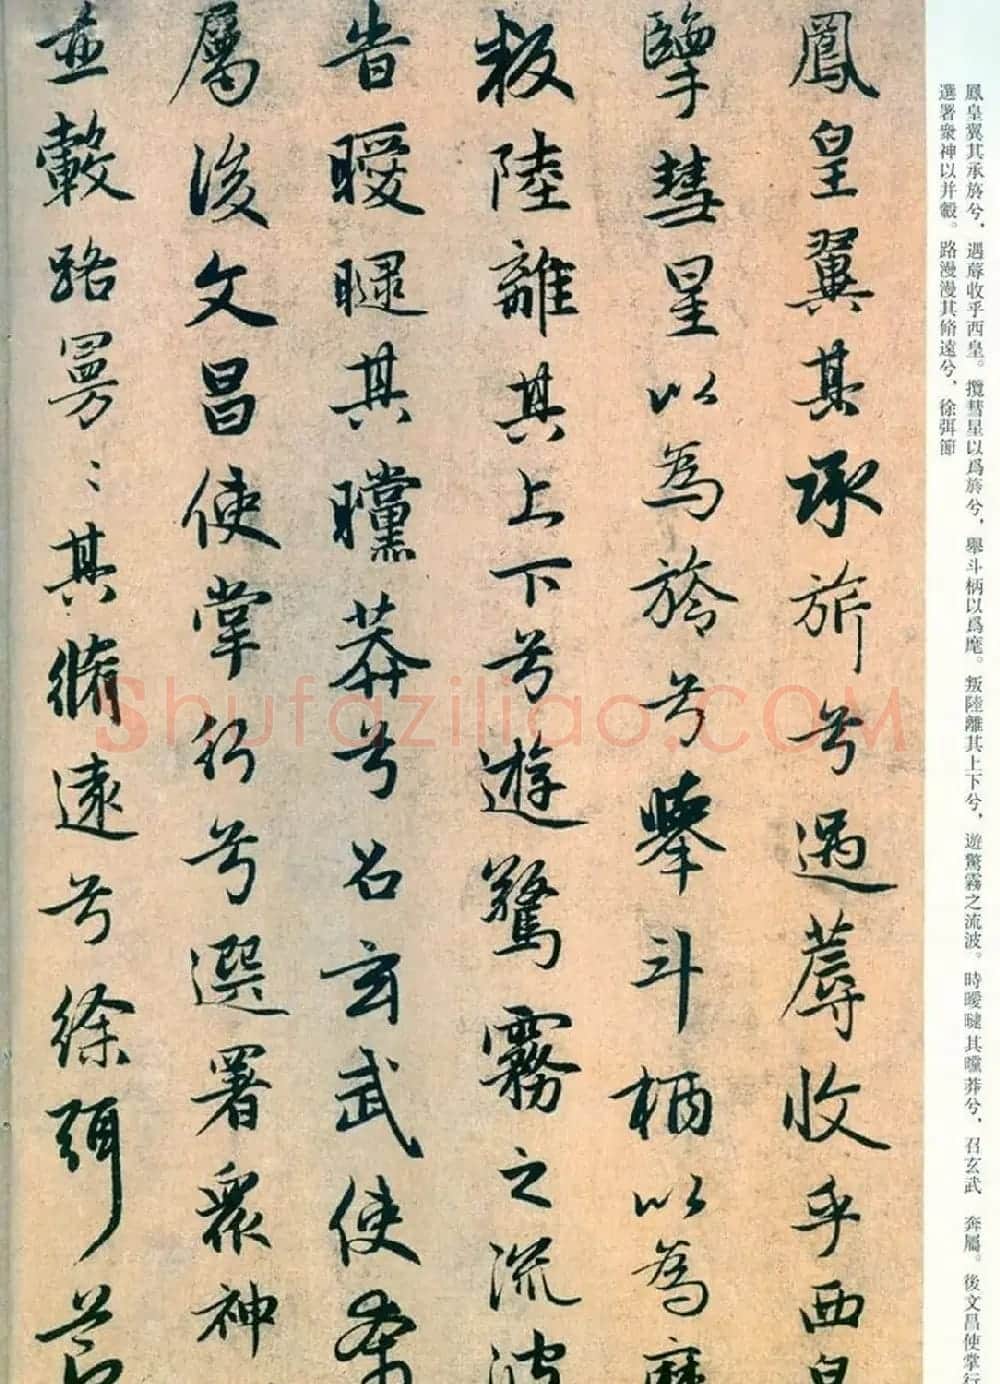 鳳皇翼其承旂兮遇蓐收乎西皇
擥彗星以為旍兮舉斗柄以為麾
叛陸離其上下兮遊驚霧之流波
旹曖曃其曭莽兮召玄武使奔
屬後文昌使掌行兮選署衆神
並轂路曼〻其脩遠兮徐弭節
鳳皇翼其承旂兮，遇蓐收乎西皇。攬彗星以爲旍兮，舉斗柄以爲麾。叛陸離其上下兮，遊驚霧之流波。時曖曃其曭莽兮，召玄武 奔屬。後文昌使掌行
選署衆神以并轂。路漫漫其脩遠兮，徐弭節
Shufaziliao.COM